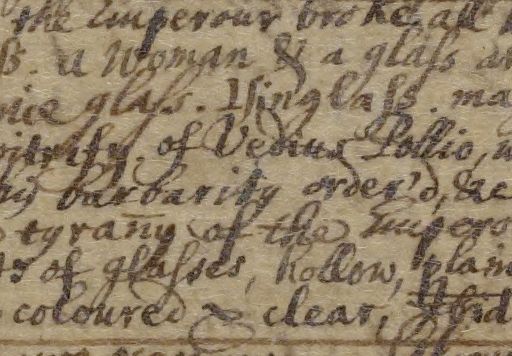 the Emperour broke all
ss. a woman & a glass ar
nice glass. Isinglass. ma
of Vedius Pollio, w
barbarity order'd, &c
tyrañy of the Empero
of glasses, hollow, plain
coloured & clear,